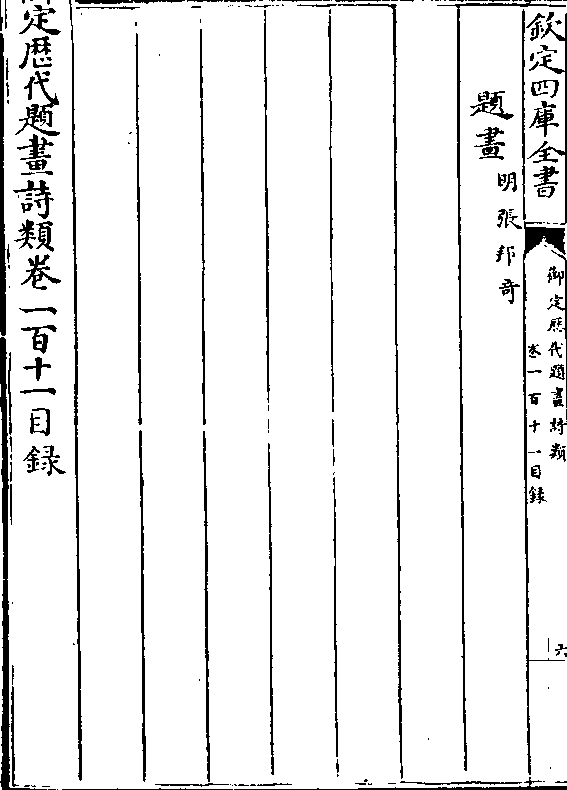 欽定四庫全書
御定歷代題畫詩類
卷一百十一目録
六
題畫明張邦奇
御定歷代題畫詩類卷一百十一目録